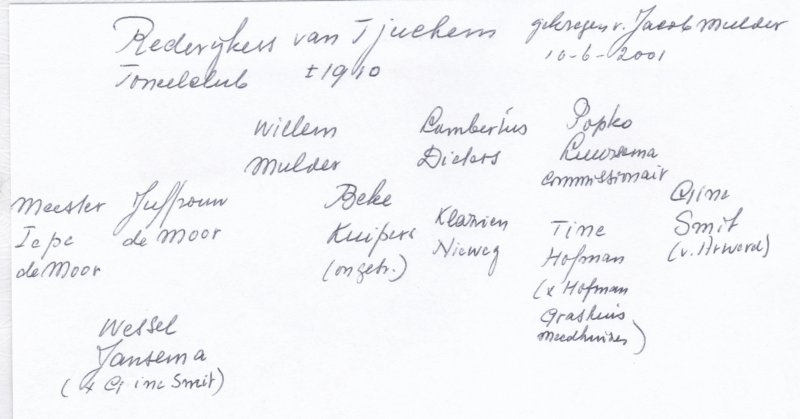 Rederijkers van Tjuchem
Toneelclub ± 1910
gekregen v. Jacob Mulder
10-6-2001
Willem
Mulder
Lambertus
Dieters
Popko
Leuwsema
commissionair
Meester
Iepe
de Moor
Juffrouw
de Moor
Beke
Kuipers
(ongetr.)
Klasien
Nieweg
Tine
Hofman
(x Hofman
Grashuis
Meedhuizen)
Gine
Smit
(v. Arwerd)
Wessel
Jansema
(x Gine Smit)